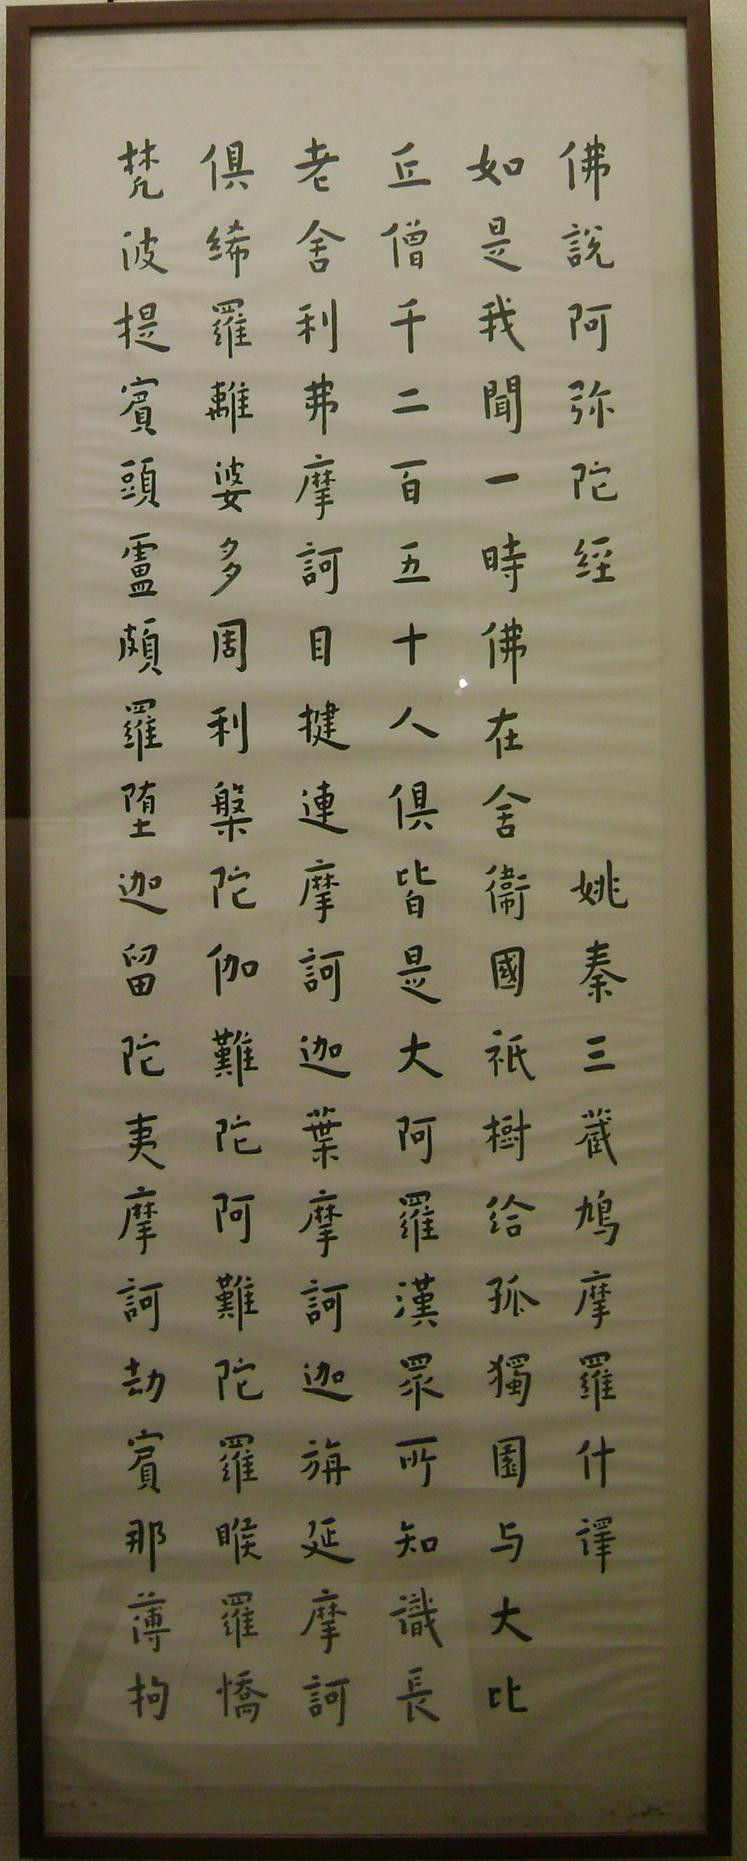 佛說阿弥陀經 姚秦三藏鳩摩羅什譯
如是我聞一時佛在舍衞國祇樹给孤獨園与大比
丘僧千二百五十人俱皆是大阿羅漢眾所知識長
老舍利弗摩訶目揵連摩訶迦葉摩訶迦旃延摩訶
俱絺羅離婆多周利槃陀伽難陀阿難陀羅睺羅憍
梵波提賓頭盧頗羅堕迦留陀夷摩訶劫賓那薄拘